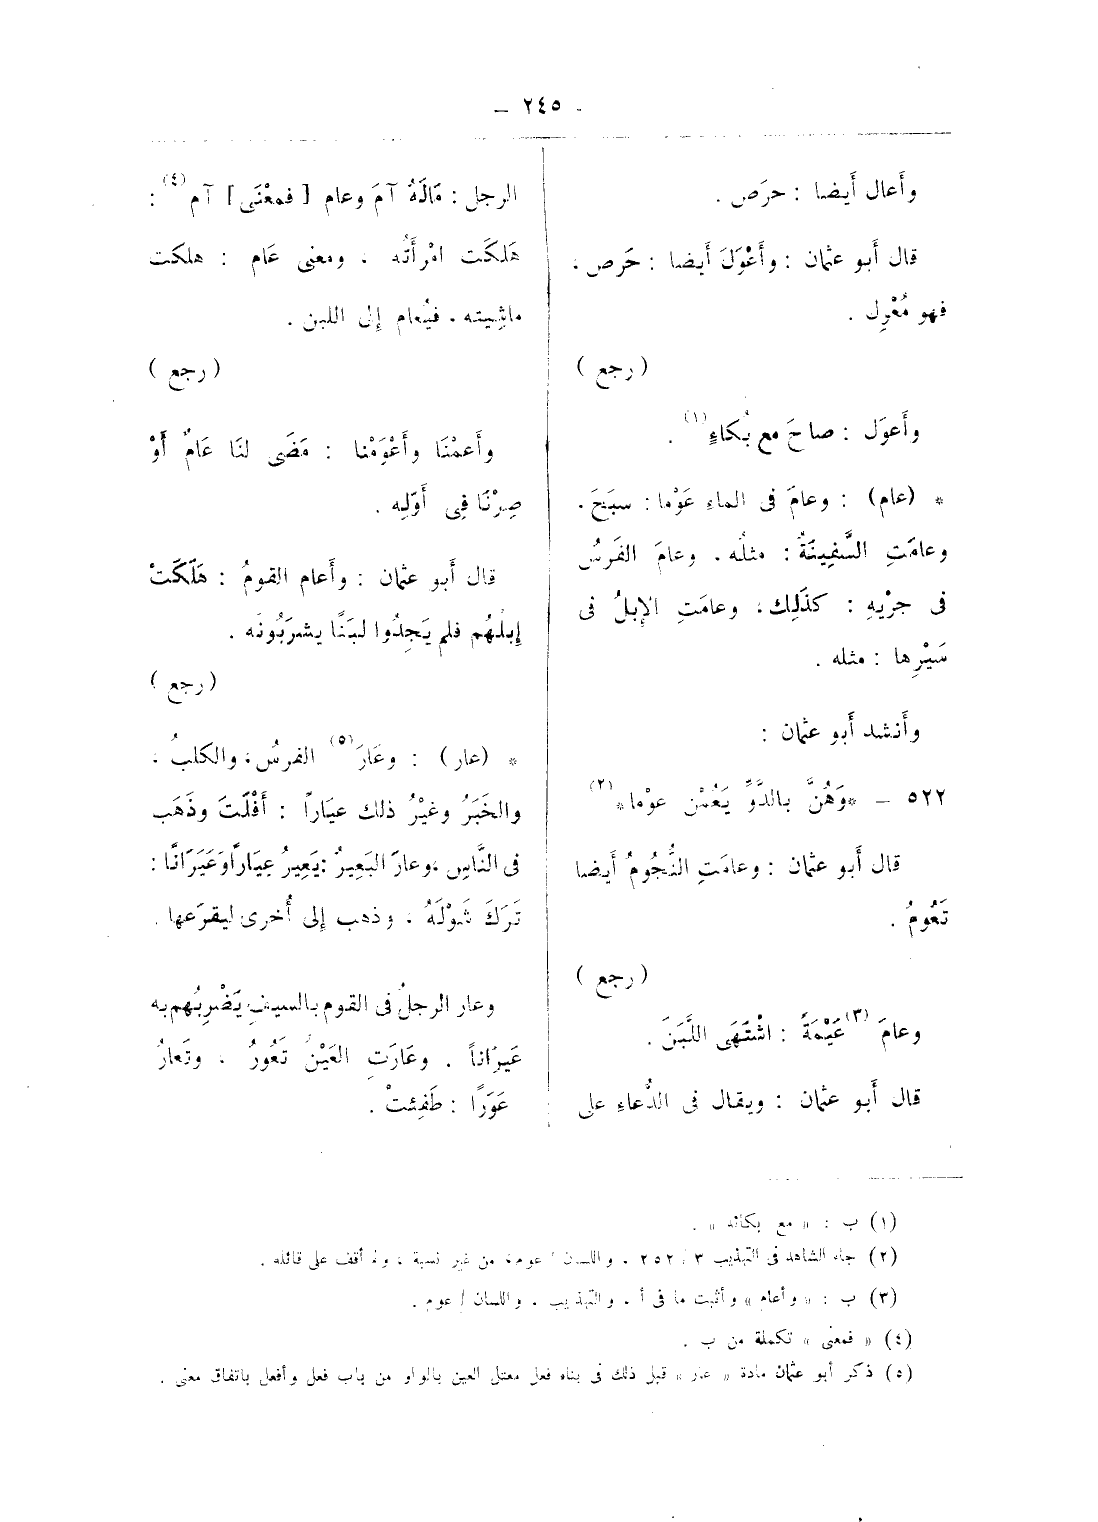 – ٢٤٥ –
وأَعال أَيضا : حرَص .
قال أَبو عثمان : وأَعْوَلَ أَيضا : حَرص ،
فهو مُعْوِل .
( رجع )
وأَعوَل : صاحَ مع بُكاءٍ(١) .
* (عام) : وعامَ فى الماءِ عَوْما : سبَحَ .
وعامَتِ السَّفِينَةُ : مثلُه . وعامَ الفَرَسُ
فى جرْيِهِ : كذَلِك ، وعامَتِ الإِبلُ فى
سَيْرِها : مثله .
وأَنشد أَبو عثمان :
٥٢٢ – *وَهُنَّ بالدَّوِّ يَعُمْن عوْما*(٢)
قال أَبو عثمان : وعامَتِ النُّجُومُ أَيضا
تَعُومُ .
( رجع )
وعامَ(٣) عَيْمَةً : اشْتَهَى اللَّبَنَ .
قال أَبو عثمان : ويقال فى الدُّعاءِ على
الرجل : مَالَهُ آمَ وعام [ فمعْنَى ] آم(٤) :
هَلكَت امْرأَتُه ، ومعنى عَام : هلكت
ماشِيته ، فيُعام إِلى اللبن .
( رجع )
وأَعمْنَا وأَعْوَمْنا : مَضَى لنَا عَامٌ أَوْ
صِرْنَا فِى أَوّلِه .
قال أَبو عثمان : وأَعام القومُ : هَلَكَتْ
إِبلُهُم فلم يَجِدُوا لبَنًا يشرَبُونَه .
( رجع )
* (عار) : وعَارَ(٥) الفرسُ ، والكلبُ ،
والخَبَرُ وغيْرُ ذلك عيَاراً : أَفْلَتَ وذَهَب
فى النَّاسِ ، وعارَ البَعِيرُ : يَعِيرُ عِيَارًا وَعَيَرَانًا :
تَرَكَ شَوْلَهُ ، وذهب إِلى أُخرى ليقرَعها .
وعار الرجلُ فى القوم بالسيفِ يَضْرِبُهم به
عَيرَاناً . وعَارَتِ العَيْنُ تَعُورُ ، وتَعارُ
عَوَرًا : طَفِئتْ .
(١) ب : « مع بكائه » .
(٢) جاء الشاهد فى التهذيب ٣ / ٢٥٢ . واللسان / عوم ، من غير نسبة ، ولم أقف على قائله .
(٣) ب : « وأعام » وأثبت ما فى أ . والتهذيب . واللسان / عوم .
(٤) « فمعنى » تكملة من ب .
(٥) ذكر أبو عثمان مادة « عار » قبل ذلك فى بناء فعل معتل العين بالواو من باب فعل وأفعل باتفاق معنى .